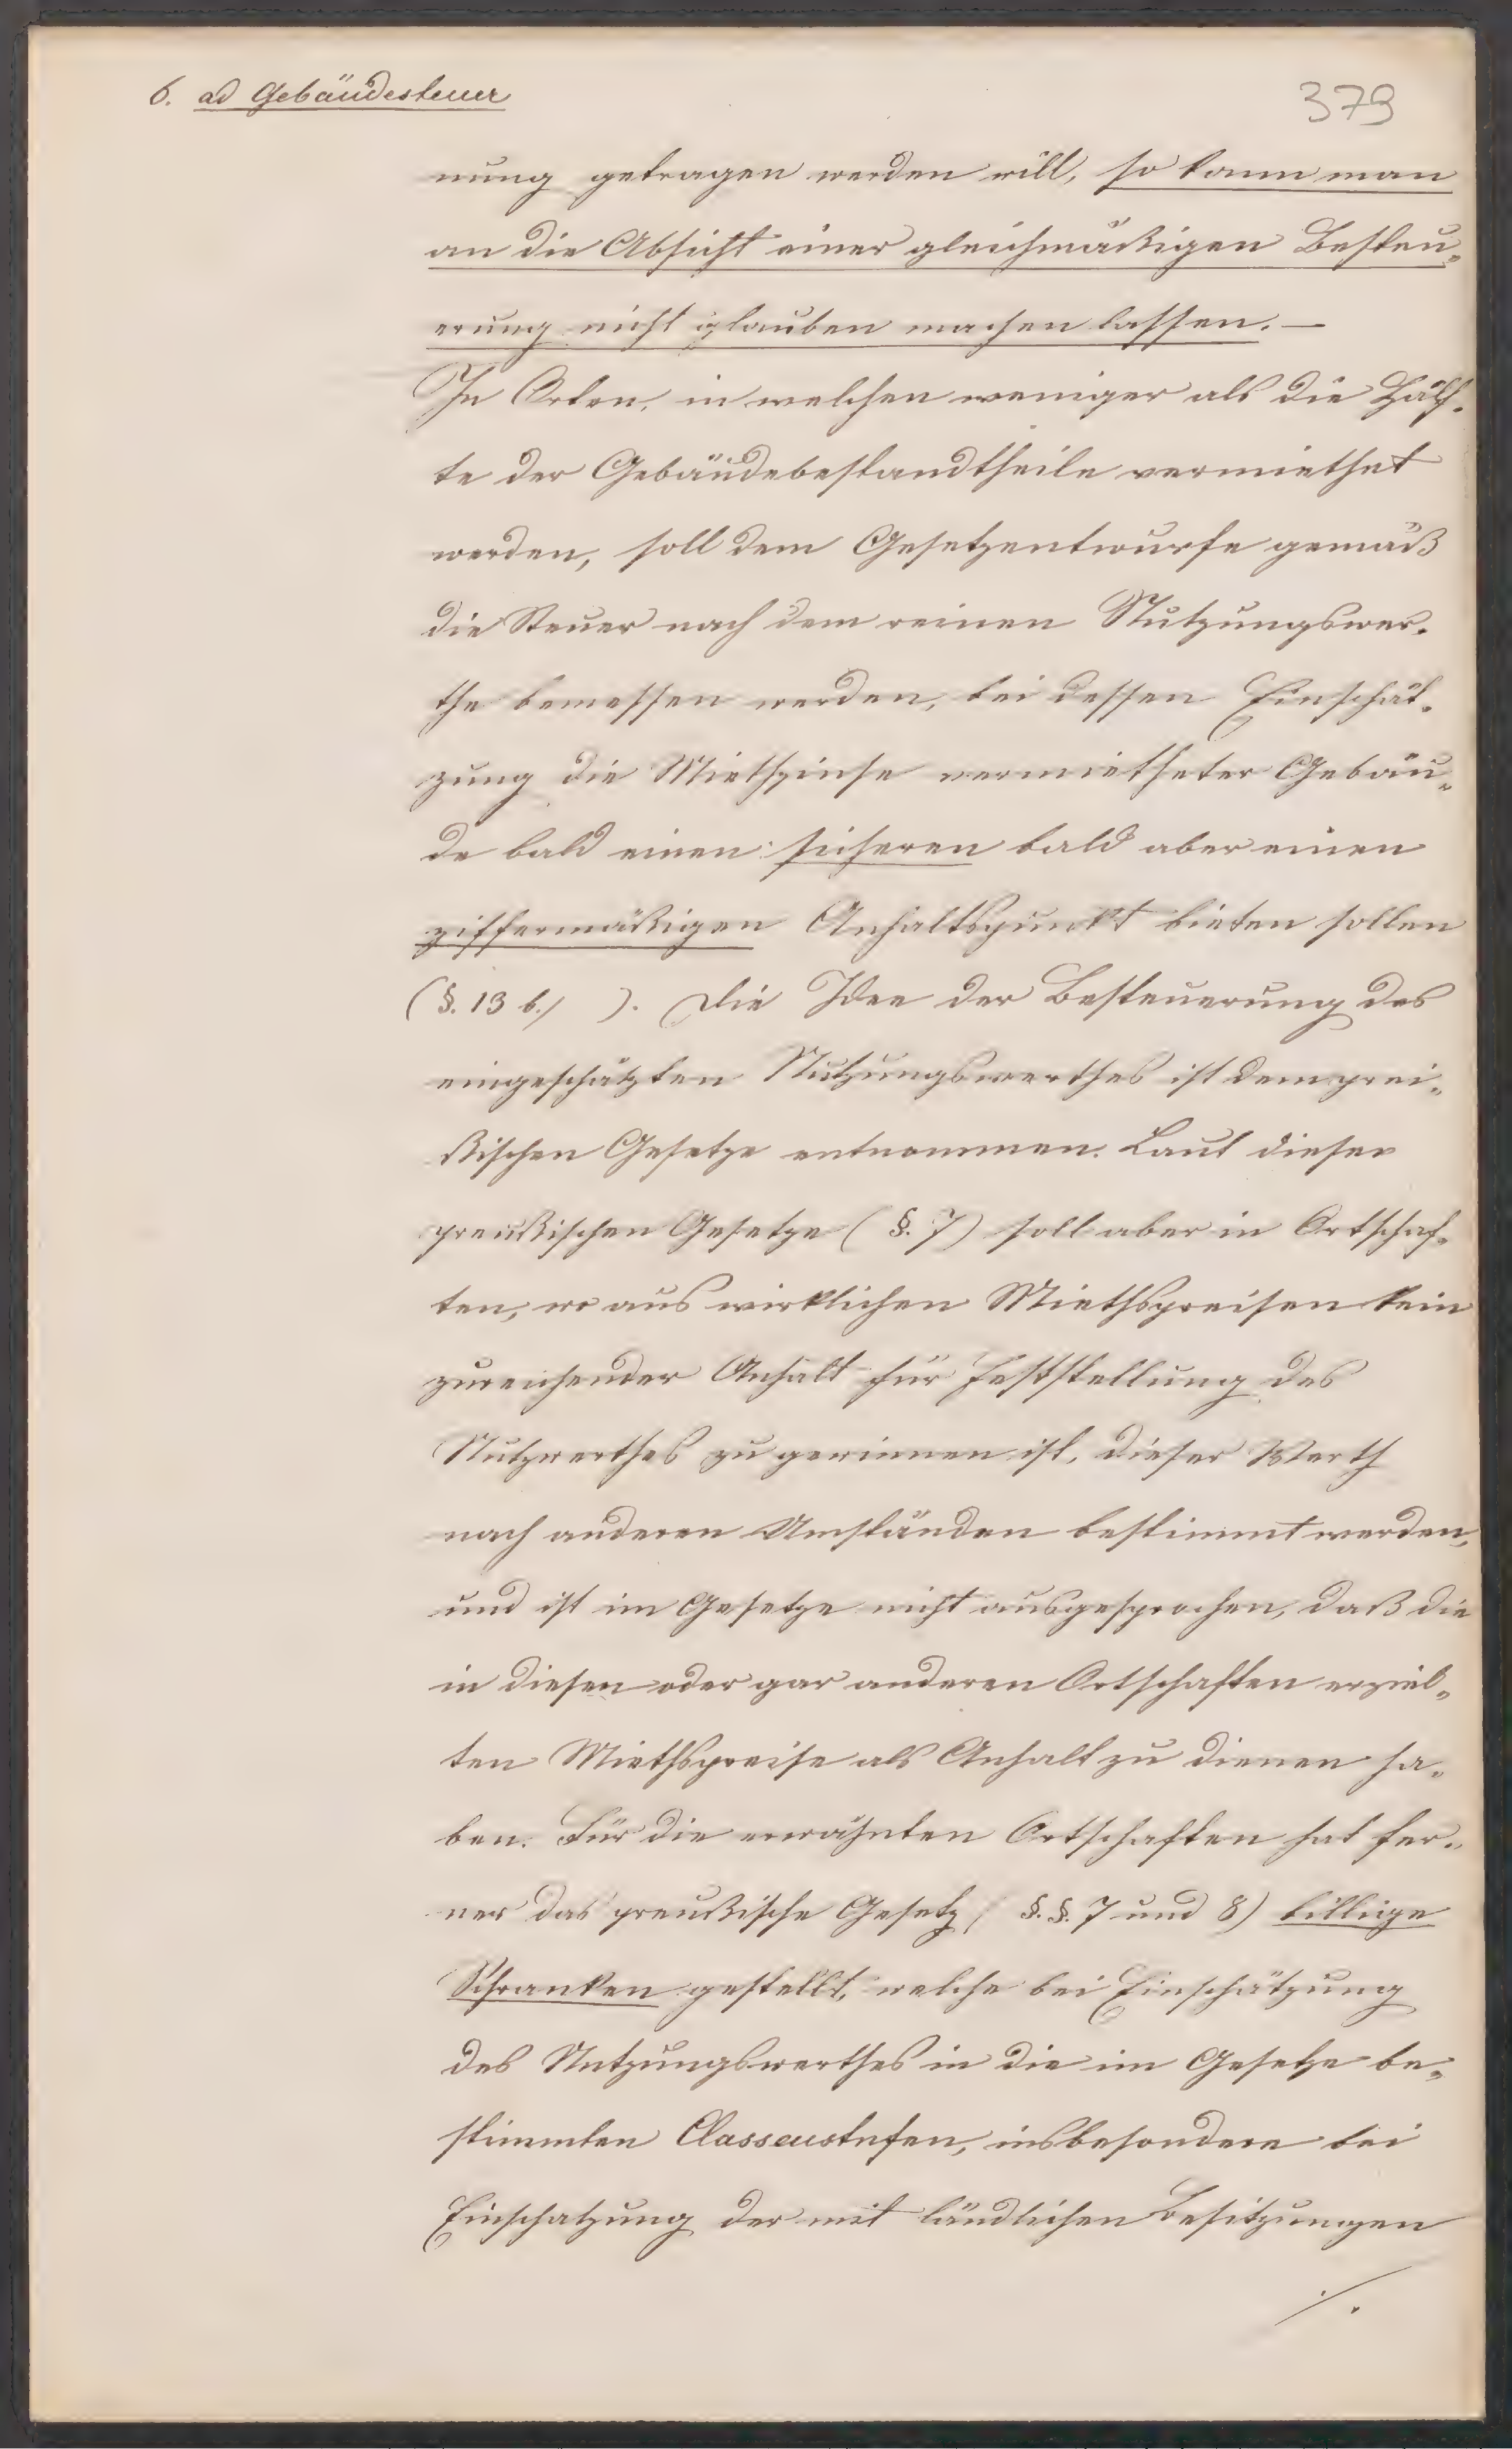 6. ad Gebäudesteuer
379
nung getragen werden will, so kann man
an die Absicht einer gleichmäßigen Besteu„
erung nicht glauben machen lassen. –
In Orten, in welchen weniger als die Hälf„
te der Gebäudebestandtheile vermiethet
werden, soll dem Gesetzentwurfe gemäß
die Steuer nach dem reinen Nutzungswer„
the bemessen werden, bei dessen Einschät„
zung die Miethzinse vermietheter Gebäu„
de bald einen sicheren bald aber einen
ziffermäßigen Anhaltspunkt bieten sollen
(§. 13 b./ ). Die Idee der Besteuerung des
eingeschätzten Nutzungswerthes ist dem prei„
ßischen Gesetze entnommen. Laut dieser
preußischen Gesetze (§. 7) soll aber in Ortschaf„
ten, wo aus wirklichen Miethspreisen kein
zureichender Anhalt für Feststellung des
Nutzwerthes zu gewinnen ist, dieser Werth
nach anderen Umständen bestimmt werden,
und ist im Gesetze nicht ausgesprochen, daß die
in diesen oder gar anderen Ortschaften erziel„
ten Miethspreise als Anhalt zu dienen ha„
ben. Für die erwähnten Ortschaften hat fer„
ner das preußische Gesetz (§.§. 7 und 8) billige
Schranken gestellt, welche bei Einschätzung
des Nutzungswerthes in die im Gesetze be„
stimmten Classenstufen, insbesondere bei
Einschatzung der mit ländlichen Besitzungen
./.